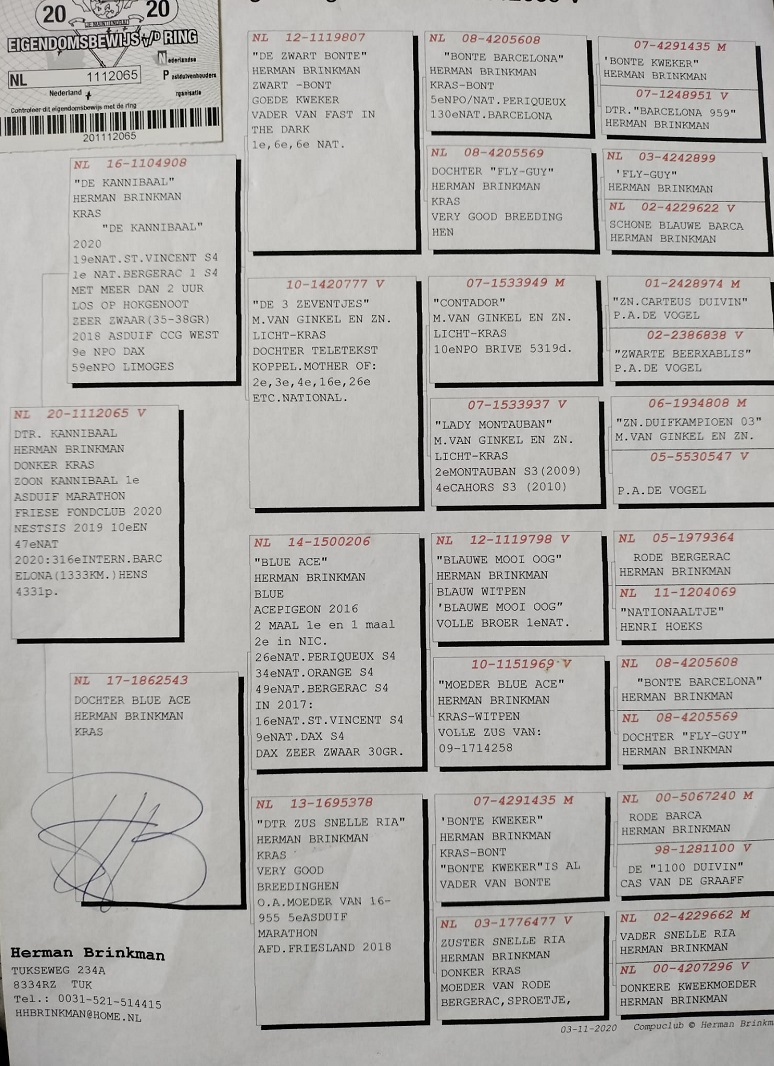 20 20
EIGENDOMSBEWIJS v/D RING
Nederlandse
NL 1112065
Postduivenhouders
Nederland
Controleer dit eigendomsbewijs met de ring
201112065
NL 16-1104908
"DE KANNIBAAL"
HERMAN BRINKMAN
KRAS
"DE KANNIBAAL"
2020
19eNAT.ST.VINCENT S4
1e NAT.BERGERAC 1 S4
MET MEER DAN 2 UUR
LOS OP HOKGENOOT
ZEER ZWAAR(35-38GR)
2018 ASDUIF CCG WEST
9e NPO DAX
59eNPO LIMOGES
NL 20-1112065 V
DTR. KANNIBAAL
HERMAN BRINKMAN
DONKER KRAS
ZOON KANNIBAAL 1e
ASDUIF MARATHON
FRIESE FONDCLUB 2020
NESTSIS 2019 10eEN
47eNAT
2020:316eINTERN.BARC
ELONA(1333KM.)HENS
4331p.
NL 17-1862543
DOCHTER BLUE ACE
HERMAN BRINKMAN
KRAS
Herman Brinkman
TUKSEWEG 234A
8334RZ TUK
Tel.: 0031-521-514415
HHBRINKMAN@HOME.NL
NL 12-1119807
"DE ZWART BONTE"
HERMAN BRINKMAN
ZWART -BONT
GOEDE KWEKER
VADER VAN FAST IN
THE DARK
1e,6e,6e NAT.
10-1420777 V
"DE 3 ZEVENTJES"
M.VAN GINKEL EN ZN.
LICHT-KRAS
DOCHTER TELETEKST
KOPPEL.MOTHER OF:
2e,3e,4e,16e,26e
ETC.NATIONAL.
NL 14-1500206
"BLUE ACE"
HERMAN BRINKMAN
BLUE
ACEPIGEON 2016
2 MAAL 1e en 1 maal
2e in NIC.
26eNAT.PERIQUEUX S4
34eNAT.ORANGE S4
49eNAT.BERGERAC S4
IN 2017:
16eNAT.ST.VINCENT S4
9eNAT.DAX S4
DAX ZEER ZWAAR 30GR.
NL 13-1695378
"DTR ZUS SNELLE RIA"
HERMAN BRINKMAN
KRAS
VERY GOOD
BREEDINGHEN
O.A.MOEDER VAN 16-
955 5eASDUIF
MARATHON
AFD.FRIESLAND 2018
NL 08-4205608
"BONTE BARCELONA"
HERMAN BRINKMAN
KRAS-BONT
5eNPO/NAT.PERIQUEUX
130eNAT.BARCELONA
NL 08-4205569
DOCHTER "FLY-GUY"
HERMAN BRINKMAN
KRAS
VERY GOOD BREEDING
HEN
07-1533949 M
"CONTADOR"
M.VAN GINKEL EN ZN.
LICHT-KRAS
10eNPO BRIVE 5319d.
07-1533937 V
"LADY MONTAUBAN"
M.VAN GINKEL EN ZN.
LICHT-KRAS
2eMONTAUBAN S3(2009)
4eCAHORS S3 (2010)
NL 12-1119798 V
"BLAUWE MOOI OOG"
HERMAN BRINKMAN
BLAUW WITPEN
'BLAUWE MOOI OOG"
VOLLE BROER 1eNAT.
10-1151969 V
"MOEDER BLUE ACE"
HERMAN BRINKMAN
KRAS-WITPEN
VOLLE ZUS VAN:
09-1714258
07-4291435 M
'BONTE KWEKER'
HERMAN BRINKMAN
KRAS-BONT
"BONTE KWEKER"IS AL
VADER VAN BONTE
NL 03-1776477 V
ZUSTER SNELLE RIA
HERMAN BRINKMAN
DONKER KRAS
MOEDER VAN RODE
BERGERAC,SPROETJE,
07-4291435 M
'BONTE KWEKER'
HERMAN BRINKMAN
07-1248951 V
DTR."BARCELONA 959"
HERMAN BRINKMAN
NL 03-4242899
'FLY-GUY"
HERMAN BRINKMAN
NL 02-4229622 V
SCHONE BLAUWE BARCA
HERMAN BRINKMAN
01-2428974 M
"ZN.CARTEUS DUIVIN"
P.A.DE VOGEL
02-2386838 V
"ZWARTE BEERXABLIS"
P.A.DE VOGEL
06-1934808 M
"ZN.DUIFKAMPIOEN 03"
M.VAN GINKEL EN ZN.
05-5530547 V
P.A.DE VOGEL
NL 05-1979364
RODE BERGERAC
HERMAN BRINKMAN
NL 11-1204069
"NATIONAALTJE"
HENRI HOEKS
NL 08-4205608
"BONTE BARCELONA"
HERMAN BRINKMAN
NL 08-4205569
DOCHTER "FLY-GUY"
HERMAN BRINKMAN
NL 00-5067240 M
RODE BARCA
HERMAN BRINKMAN
98-1281100 V
DE "1100 DUIVIN"
CAS VAN DE GRAAFF
NL 02-4229662 M
VADER SNELLE RIA
HERMAN BRINKMAN
NL 00-4207296 V
DONKERE KWEEKMOEDER
HERMAN BRINKMAN
03-11-2020 Compuclub © Herman Brinkm